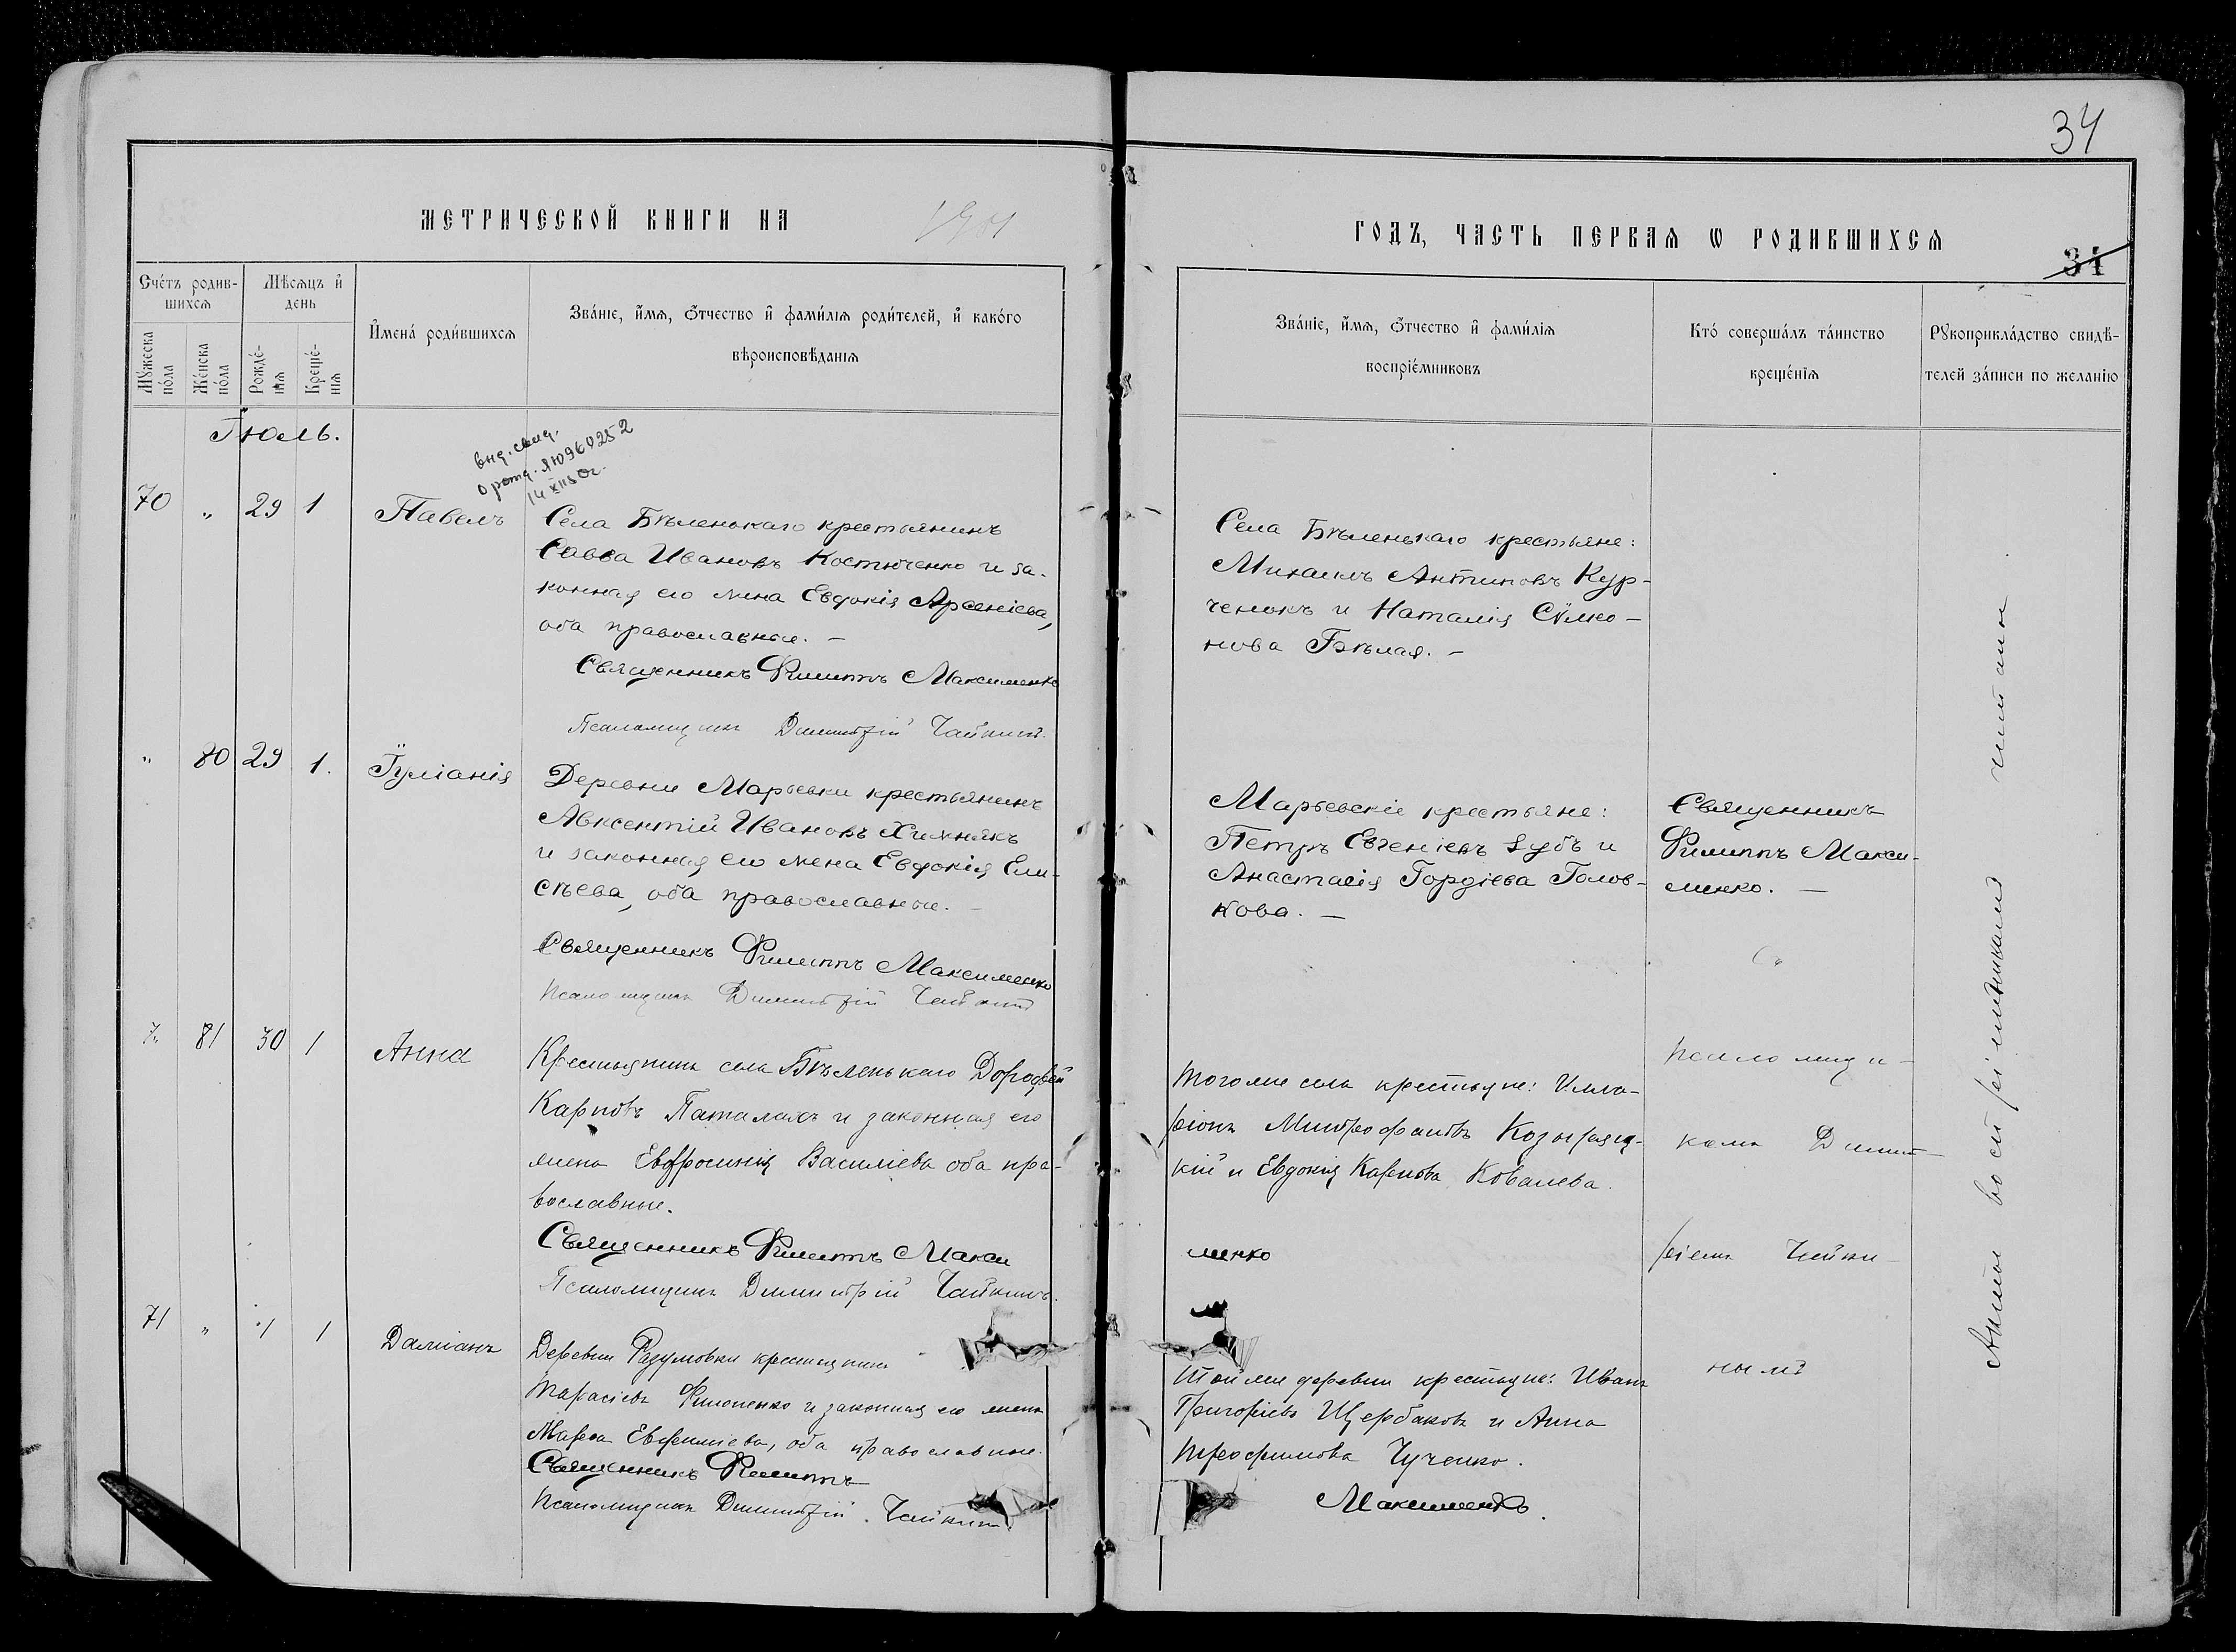 34
МЕТРИЧЕСКОЙ КНИГИ НА
ГОДЪ, ЧАСТЬ ПЕРВАѦ Ѡ РОДИВШИХСѦ
34
Счéтъ родив-
шихсѧ
Мꙋ́жеска
пóла
Жéнска
пóла
Мѣ́сѧцъ и҆
день
Рождé-
нїѧ
Крещé-
нїѧ
И҆менá роди́вшихсѧ
Звáнїе, и҆́мѧ, ѻ҆́тчество и҆ фами́лїѧ роди́телей, и҆ какóго
вѣроисповѣ́данїѧ
Звáнїе, и҆́мѧ, ѻ҆́тчество и҆ фами́лїѧ
воспрїéмниковъ
Ктó совершáлъ тáинство
крещéнїѧ
Рꙋкоприклáдство свидѣ́-
телей зáписи по желáнїю
Іюль.
выд. свид.
о рожд. ЯЮ960252
70 „ 29 1 Павелъ
Села Бѣленькаго крестьянинъ
Савва Ивановъ Костюченко и за-
конная его жена Евдокія Арсеніева,
оба православные. –
Священникъ Филиппъ Максименко
Псаломщикъ Димитрій Чайкинъ.
Села Бѣленькаго крестьяне:
Михаилъ Антиповъ Кур-
ченокъ и Наталія Сѵмо-
нова Бѣлая. –
„ 80 29 1. Іуліанія
Деревни Марьевки крестьянинъ
Авксентій Ивановъ Химнякъ
и законная его жена Евдокія Ели-
сѣева, оба православные. –
Священникъ Филиппъ Максименко
Псаломщикъ Димитрій Чайкинъ
Марьевскіе крестьяне:
Петръ Евгеніевъ Зубъ и
Анастасія Гордіева Голов-
кова. –
Священникъ
Филиппъ Макси-
менко. –
81 30 1 Анна
Крестьянинъ села Бѣленькаго Дорофей
Карповъ Паталахъ и законная его
жена Евфросинія Василіева оба пра-
вославные.
Священникъ Филиппъ Макси
менко
Псаломщикъ Димитрій Чайкинъ.
Того же села крестьяне: Илла-
ріонъ Митрофановъ
кій и Евдокія Карпова Ковалева.
псаломщи-
комъ Димит-
ріемъ Чайки-
нымъ
71 „ 1 1 Даміанъ
Деревни Разумовки крестьянинъ
Тарасіевъ Филоненко и законная его жена
Марѳа Евфиміева, оба православные.
Священникъ Филиппъ
Максименко.
Псаломщикъ Димитрій Чайкинъ.
Той же деревни крестьяне: Иванъ
Григоріевъ Щербаковъ и Анна
Трофимова Чученко.
Акты воспріемникамъ читаны.